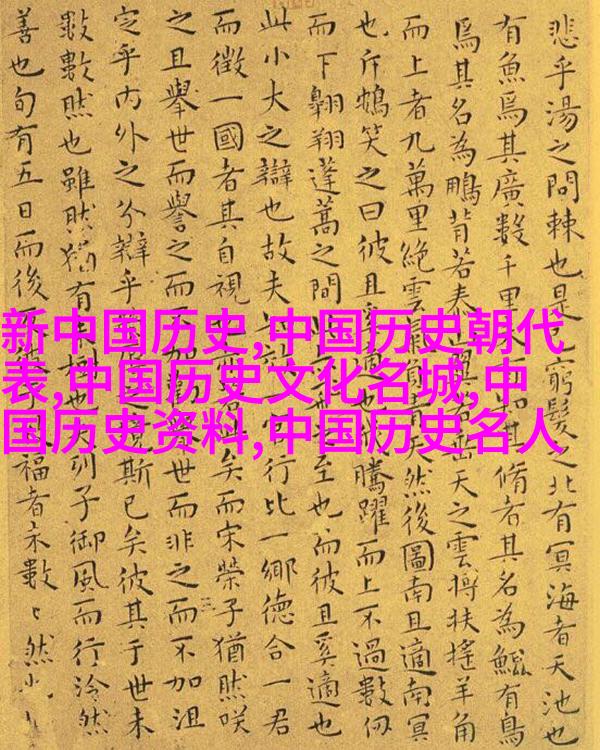 悲乎湯之問棘也是窮髮之北有冥海者天池也
有魚焉其廣數千里知其脩者其名為鯤有鳥
焉其名為鵬背若泰山翼若垂天之雲摶扶搖羊角
而上者九萬里絕雲氣負青天然後圖南且適南冥
也斥鴳笑之曰彼且奚適也我騰躍而上不過數仞
而下翱翔蓬蒿之間此至也而彼且奚適也
此小大之辯也故夫一官行比一鄉德合一君
而徵一國者其自視也亦若此矣而宋榮子猶然咲
之且舉世而譽之而不加勸舉世而非之而不加沮
定乎內外之分辯乎之境斯已矣彼其于世未
數數然也雖然猶有未樹也夫列子御風而行泠然
善也旬有五日而後福者未數〻然也
新中国历史,中国历史朝代
表,中国历史文化名城,中
国历史资料,中国历史名人